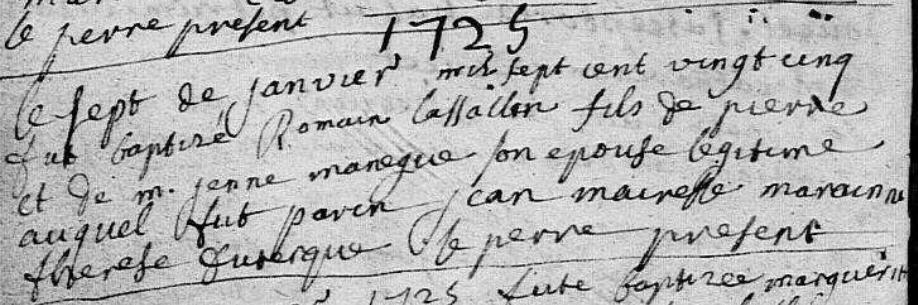 le perre present 1725
le sept de janvier mil sept cent vingt cinq
fut baptizé Romain Cassallon fils de pierre
et de m. jenne maneque son epouse legitime
auquel fut parin jean mairesse marainne
therese duterque le perre present
1725 fute baptizee marguerit